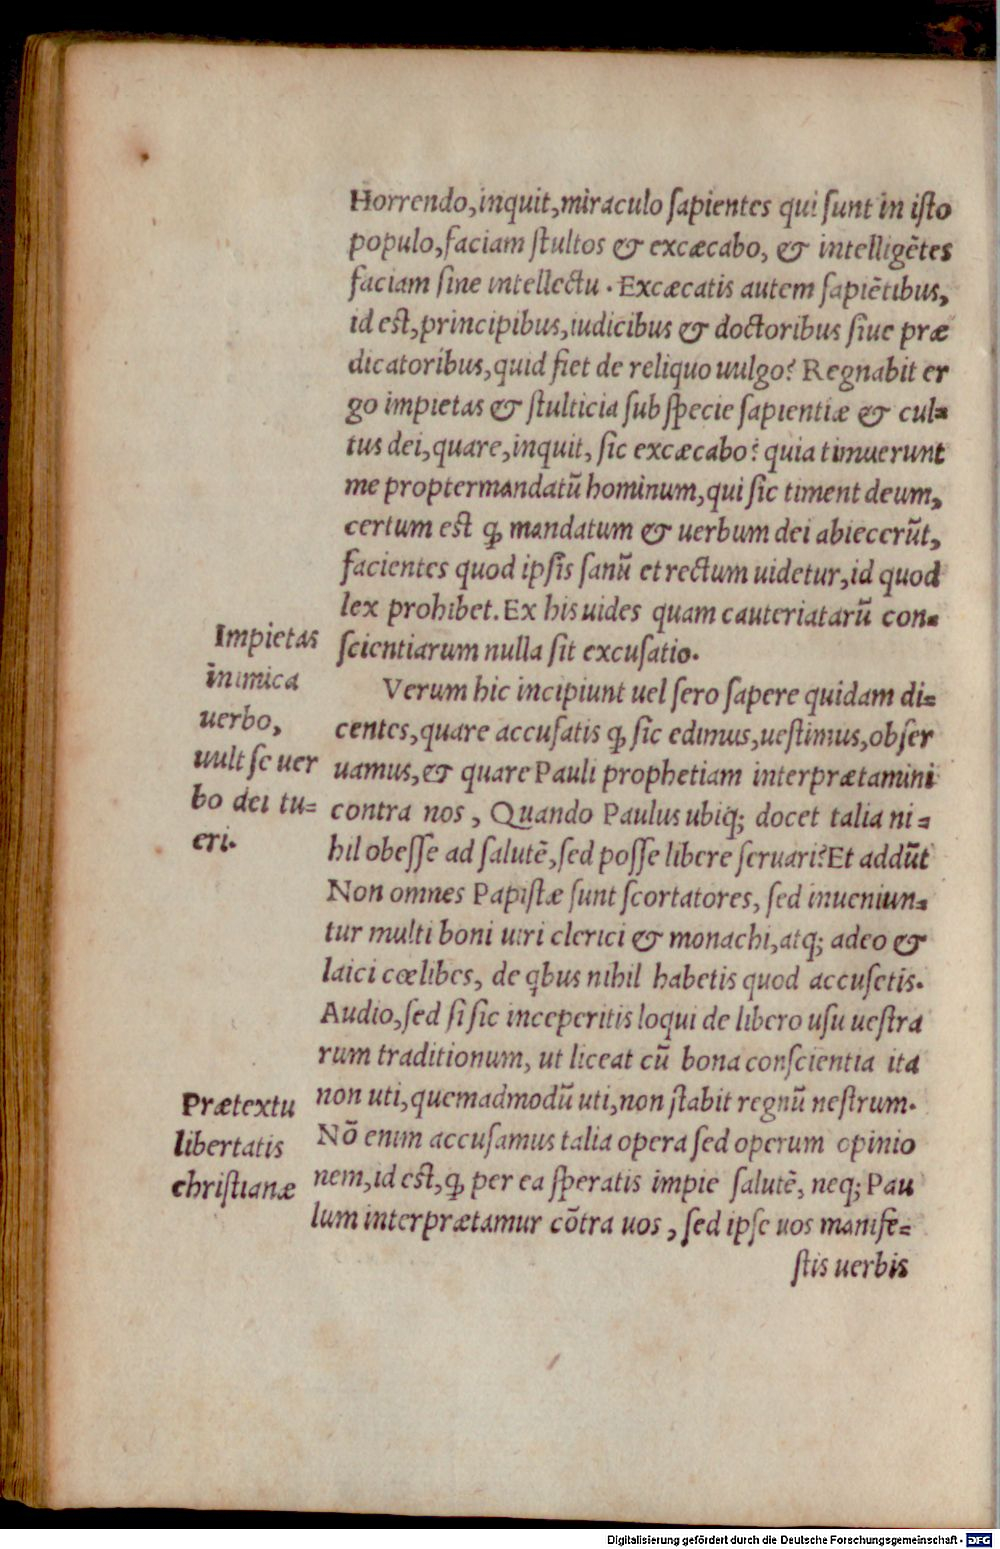 Horrendo,inquit,miraculo ſapientes qui ſunt in iſto
populo,faciam ſtultos & excæcabo, & intelligẽtes
faciam ſine intellectu . Excæcatis autem ſapiẽtibus,
id eſt,principibus,iudicibus & doctoribus ſiue præ
dicatoribus,quid fiet de reliquo uulgo? Regnabit er
go impietas & ſtulticia ſub ſpecie ſapientiæ & cul=
tus dei,quare,inquit, ſic excæcabo? quia timuerunt
me proptermandatũ hominum,qui ſic timent deum,
certum eſt ꝙ mandatum & uerbum dei abiecerũt,
facientes quod ipſis ſanũ et rectum uidetur,id quod
lex prohibet. Ex his uides quam cauteriatarũ con=
ſcientiarum nulla ſit excuſatio.
Impietas
inimica
uerbo,
uult ſe uer
bo dei tu=
eri.
Verum hic incipiunt uel ſero ſapere quidam di=
centes,quare accuſatis ꝙ ſic edimus,ueſtimus,obſer
uamus,& quare Pauli prophetiam interprætamini
contra nos , Quando Paulus ubiq; docet talia ni=
hil obeſſe ad ſalutẽ,ſed poſſe libere ſeruari? Et addũt
Non omnes Papiſtæ ſunt ſcortatores, ſed inueniun=
tur multi boni uiri clerici & monachi,atq; adeo &
laici cœlibes, de ꝗbus nihil habetis quod accuſetis.
Audio,ſed ſi ſic inceperitis loqui de libero uſu ueſtra
rum traditionum, ut liceat cũ bona conſcientia ita
non uti,quemadmodũ uti,non ſtabit regnũ neſtrum.
Nõ enim accuſamus talia opera ſed operum opinio
nem,id eſt,ꝙ per ea ſperatis impie ſalutẽ, neq; Pau
lum interprætamur cõtra uos , ſed ipſe uos manife=
ſtis uerbis
Prætextu
libertatis
chriſtianæ
Digitalisierung gefördert durch die Deutsche Forschungsgemeinschaft - DFG